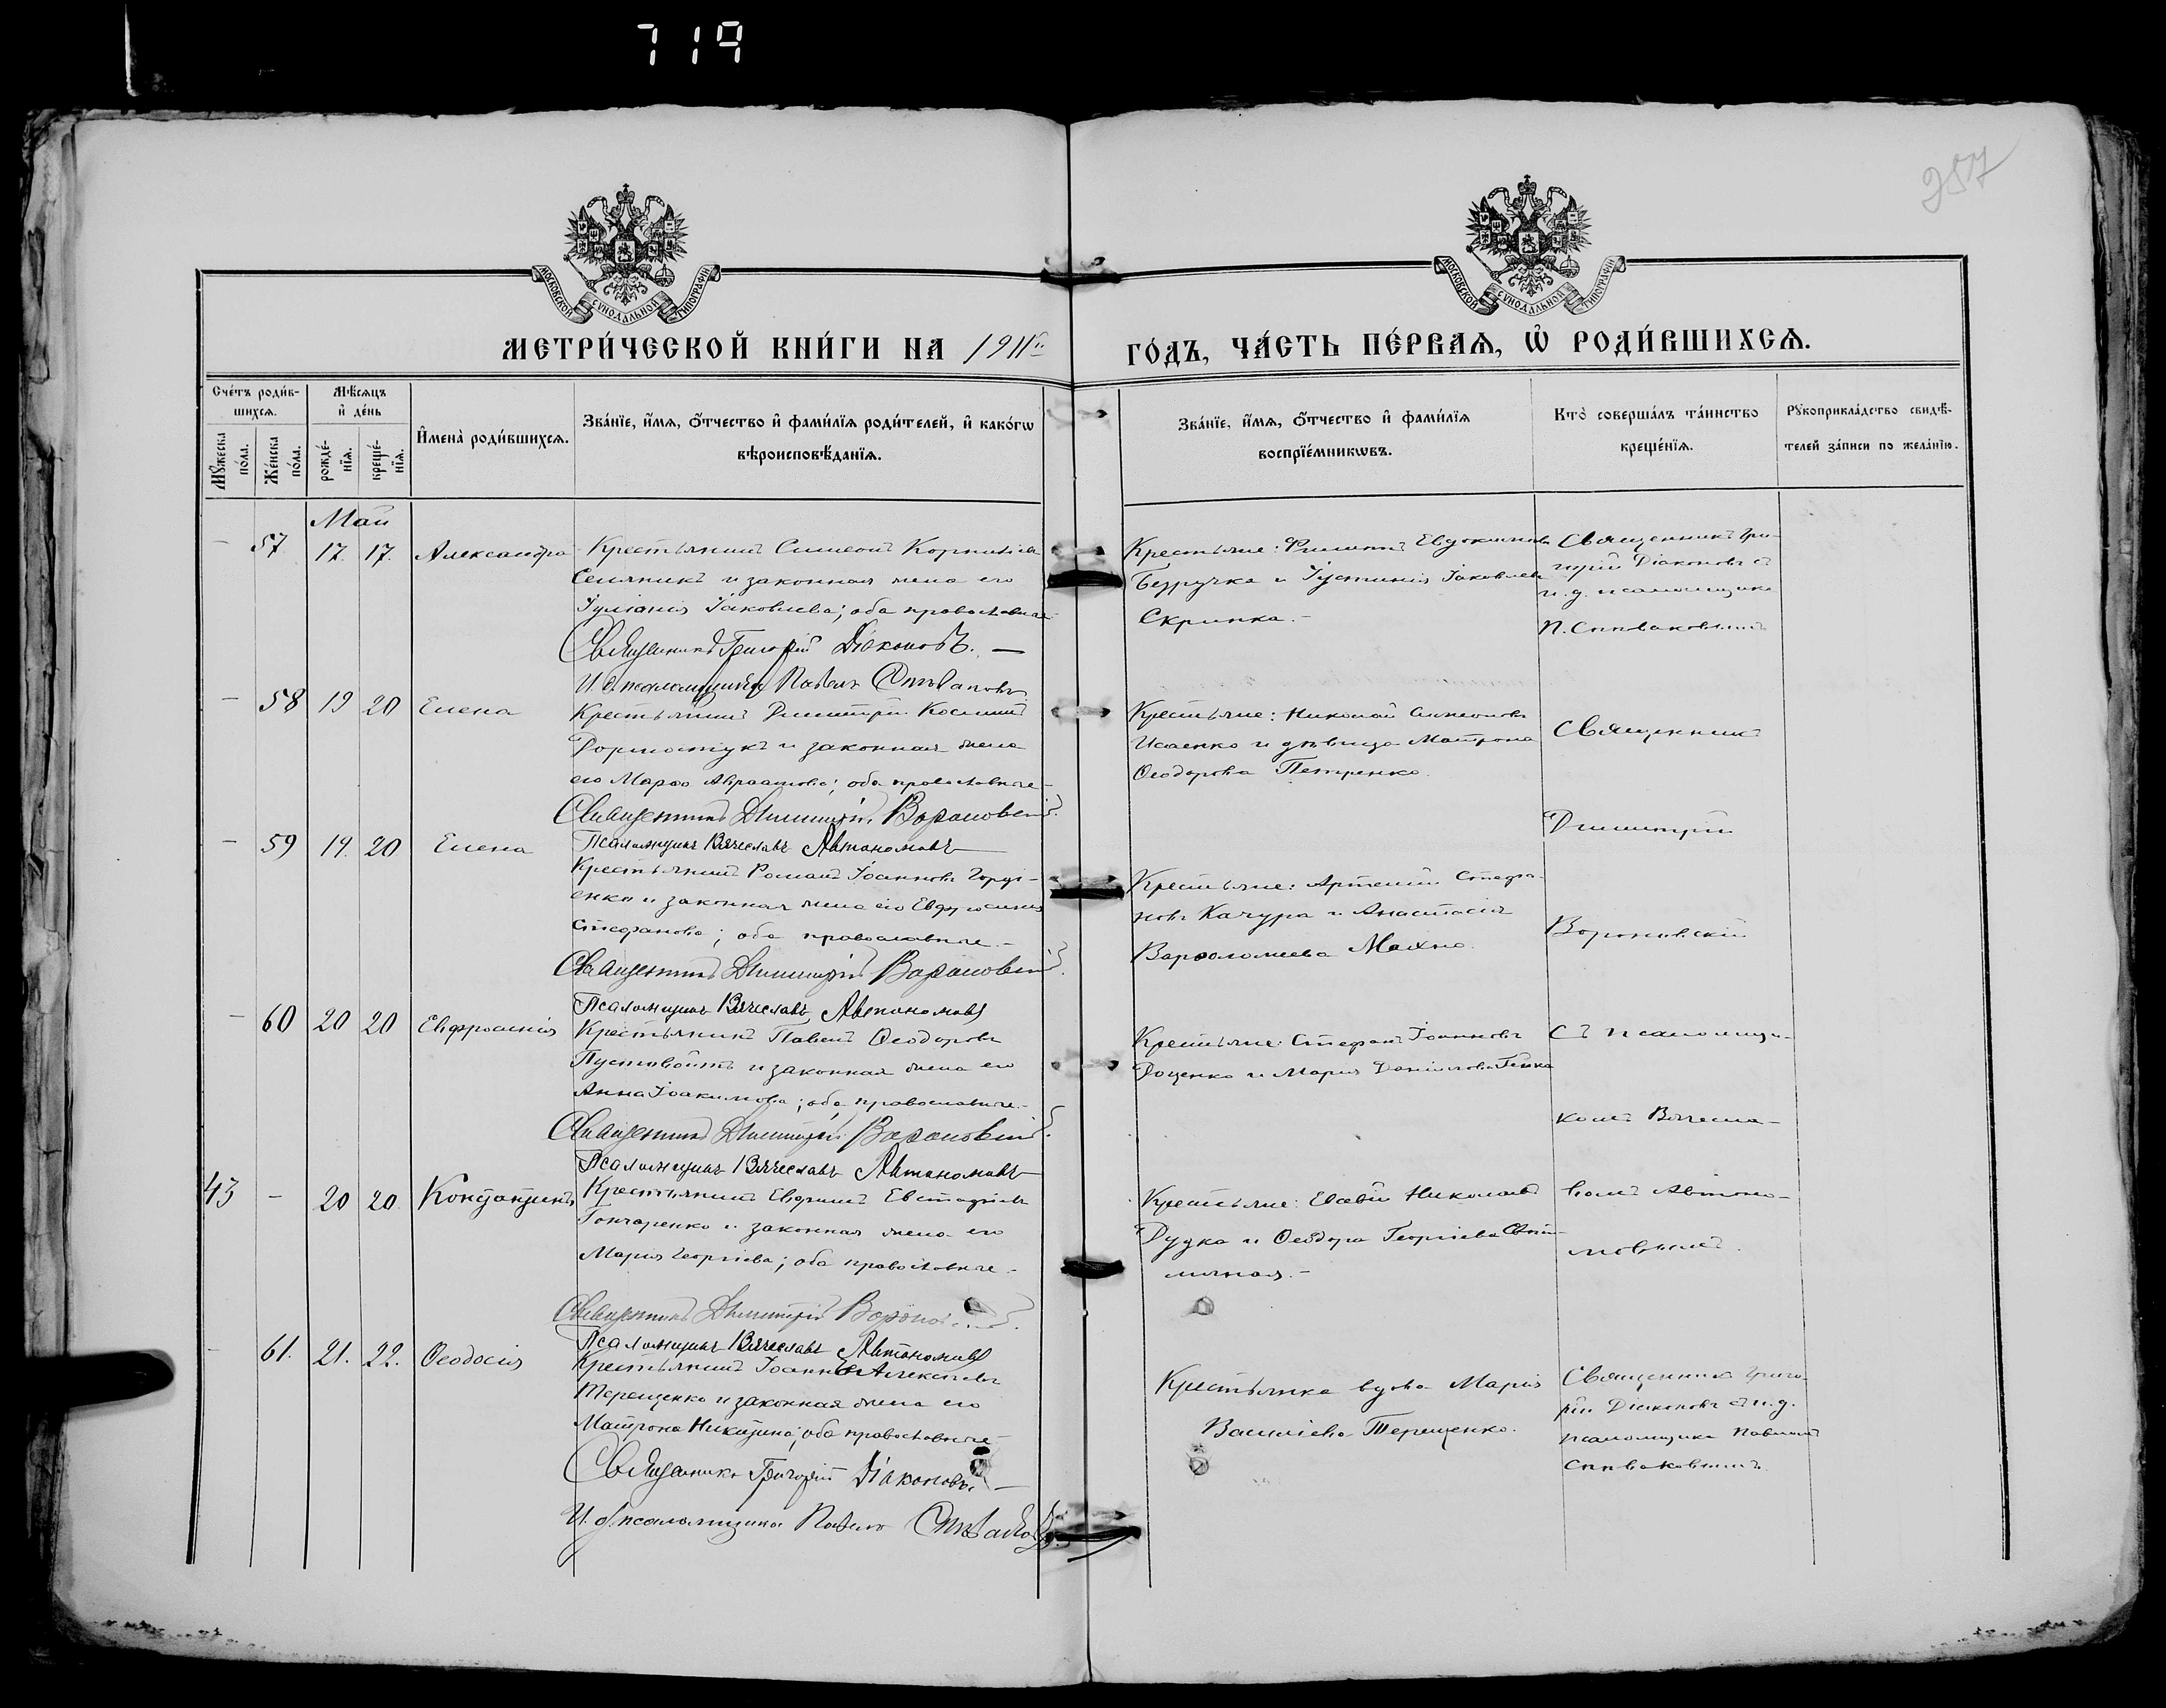 719
257
МОСКОВСКОЙ СѴНОДАЛЬНОЙ ТИПОГРАФІИ
МОСКОВСКОЙ СѴНОДАЛЬНОЙ ТИПОГРАФІИ
МЕТРИ́ЧЕСКОЙ КНИ́ГИ НА 1911й
ГО́ДЪ, ЧА́СТЬ ПЕ́РВАѦ, Ѡ҆ РОДИ́ВШИХСѦ.
Сче́тъ роди́в-
шихсѧ.
Мꙋ́жеска по́ла.
Же́нска по́ла.
Мѣ́сѧцъ
и҆ де́нь
рожде́-нїѧ.
креще́-нїѧ.
И҆мена̀ роди́вшихсѧ.
Зва́нїе, и҆́мѧ, о҆́тчество и҆ фами́лїѧ роди́телей, и҆ како́гѡ
вѣроисповѣ́данїѧ.
Зва́нїе, и҆́мѧ, о҆́тчество и҆ фами́лїѧ
воспрїе́мникѡвъ.
Кто̀ соверша́лъ та́инство
креще́нїѧ.
Рꙋкоприкла́дство свидѣ́-
телей за́писи по жела́нїю.
Май
57 17. 17. Александра
Крестьянинъ Симеонъ Корнилiевъ
и законная жена его
Iулiанiя Iаковлева; оба православные
Священникъ Григорiй Дiаконовъ.
И. д. псаломщика Павелъ Спѣваковъ
Крестьяне: Филиппъ Евдокимовъ
Безручка и Iустинiя Iаковлева
Скрипка.
Священникъ Гри-
горiй Дiаконовъ съ
и. д. псаломщика
П. Спѣваковымъ
58 19 20 Елена
Крестьянинъ Димитрiй Косминъ
и законная жена
его Марѳа Авраамова; оба православные
Священникъ Димитрiй Вороновскiй.
Псаломщикъ Вячеславъ Автономовъ
Крестьяне: Николай Симеоновъ
Исаенко и дѣвица Матрона
Ѳеодорова Петренко.
Священникъ
Димитрiй
Вороновскiй
съ псаломщи-
комъ Вячесла-
вомъ Автоно-
мовымъ.
59 19. 20 Елена
Крестьянинъ Романъ Iоанновъ Горді-
енко и законная жена его Евфросинiя
Стефанова; оба православные.-
Священникъ Димитрiй Вороновскiй.
Псаломщикъ Вячеславъ Автономовъ
Крестьяне: Артемiй Стефа-
новъ Качура и Анастасiя
Варѳоломеева Махно.
60 20 20 Евфросинiя
Крестьянинъ Павелъ Ѳеодоровъ
Пустовойтъ и законная жена его
Анна Iоакимова; оба православные.-
Священникъ Димитрiй Вороновскiй.
Псаломщикъ Вячеславъ Автономовъ
Крестьяне: Стефанъ Iоанновъ
Доценко и Марiя Данiилова
43 - 20 20. Константинъ
Крестьянинъ Евфимъ Евстафiевъ
Гончаренко и законная жена его
Марiя Георгiева; оба православные.-
Священникъ Димитрiй
Псаломщикъ Вячеславъ Автономовъ
Крестьяне: Николаевъ
Дудка и Ѳеодора Георгiева
61. 21. 22. Ѳеодосiя
Крестьянинъ Iоаннъ Алексѣевъ
Терещенко и законная жена его
Матрона Никитина; оба православные
Священникъ Григорiй Дiаконовъ.
И. д. псаломщика Павелъ Спѣваковъ
Крестьянка вдова Марiя
Васильева Терещенко.
Священникъ Григо-
рiй Дiаконовъ съ и. д.
псаломщика Павломъ
Спѣваковымъ.